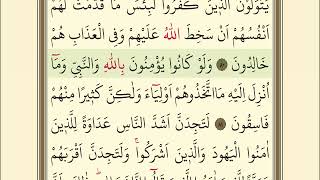 يَتَوَلَّوْنَ الَّذٖينَ كَفَرُواؕ لَبِئْسَ مَا قَدَّمَتْ لَهُمْ
اَنْفُسُهُمْ اَنْ سَخِطَ اللّٰهُ عَلَيْهِمْ وَفِي الْعَذَابِ هُمْ
خَالِدُونَ ﴿٨٠﴾ وَلَوْ كَانُوا يُؤْمِنُونَ بِاللّٰهِ وَالنَّبِيِّ وَمَٓا
اُنْزِلَ اِلَيْهِ مَا اتَّخَذُوهُمْ اَوْلِيَٓاءَ وَلٰكِنَّ كَثٖيرًا مِنْهُمْ
فَاسِقُونَ ﴿٨١﴾ لَتَجِدَنَّ اَشَدَّ النَّاسِ عَدَاوَةً لِلَّذٖينَ
اٰمَنُوا الْيَهُودَ وَالَّذٖينَ اَشْرَكُواۚ وَلَتَجِدَنَّ اَقْرَبَهُمْ